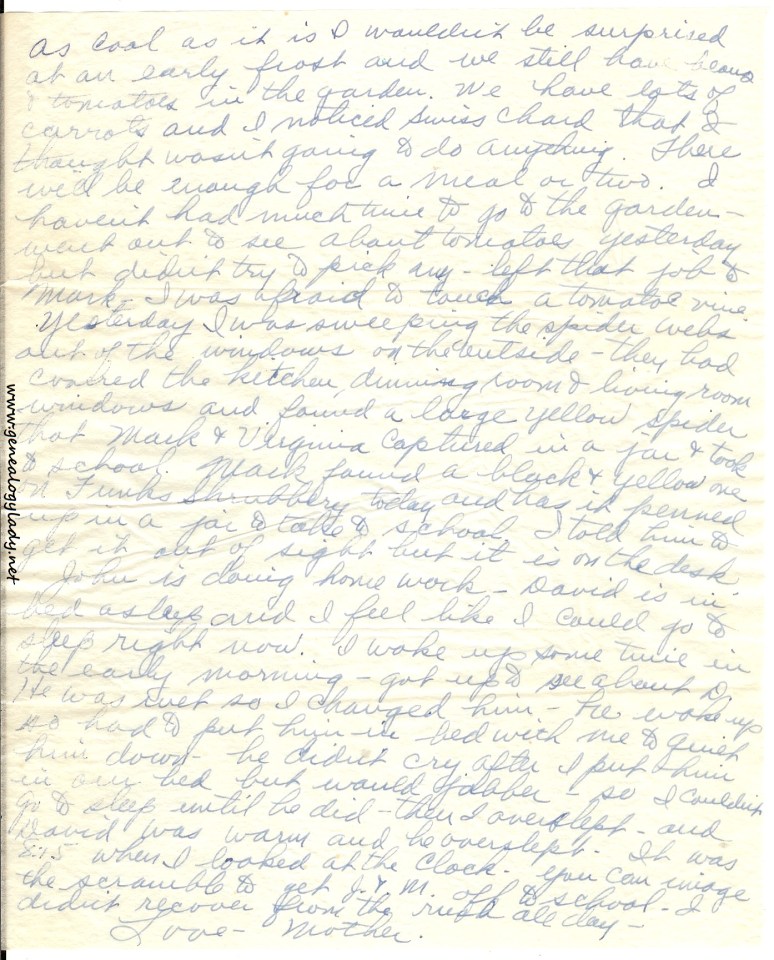 as cool as it is I wouldn't be surprised
at an early frost and we still have beans
& tomatoes in the garden. We have lots of
carrots and I noticed swiss chard that I
thought wasn't going to do anything. There
will be enough for a meal or two. I
haven't had much time to go to the garden -
went out to see about tomatoes yesterday
but didn't try to pick any - left that job to
Mark - I was afraid to touch a tomatoe vine.
Yesterday I was sweeping the spider webs
out of the windows on the outside - they had
covered the kitchen, dinning room & living room
windows and found a large yellow spider
that Mark & Virginia captured in a jar & took
to school. Mark found a black & yellow one
on Funks shrubbery today and has it penned
up in a jar to take to school. I told him to
get it out of sight but it is on the desk.
John is doing home work - David is in
bed asleep and I feel like I could go to
sleep right now. I woke up some time in
the early morning - got up to see about D.
He was wet so I changed him - He woke up
so had to put him in bed with me to quiet
him down - he didn't cry after I put him
in our bed but would jabber - so I couldn't
go to sleep until he did - then I overslept - and
David was warm and he overslept. It was
8:15 when I looked at the clock. you can image
the scramble to get J. & M. off to school - I
didn't recover from the rush all day -
Love - Mother.
www.genealogylady.net